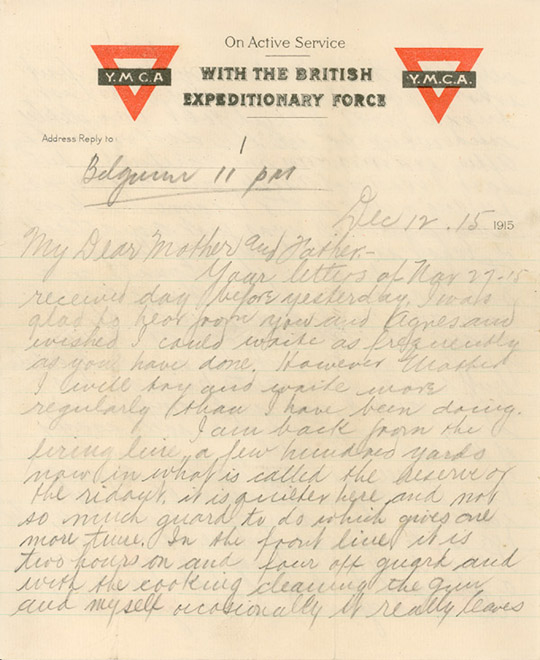 On Active Service
WITH THE BRITISH
EXPEDITIONARY FORCE
Y.M.C.A
Y.M.C.A.
Address Reply to
1
Belgium 11 pm
Dec 12. 15 1915
My Dear Mother and Father-
Your letters of Nov 27-15
received day before yesterday. I was
glad to hear from you and Agnes and
wished I could write as frequently
as you have done. However Mother
I will try and write more
regularly than I have been doing.
I am back from the
firing line, a few hundred yards
now in what is called the reserve or
the it is quieter here and not
so much guard to do which gives one
more time. In the front line it is
two hours on and four off guard and
with the cooking cleaning the gun
and myself occasionally it really leaves